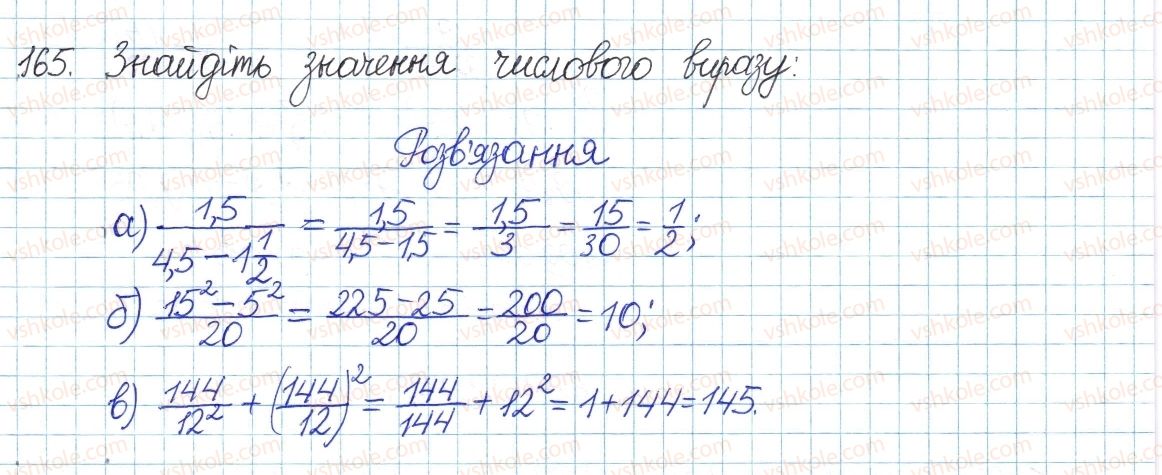 165. Знайдіть значення числового виразу:
Розв'язання
а) 1,5/(4,5 − 1 1/2) = 1,5/(4,5 − 1,5) = 1,5/3 = 15/30 = 1/2;
б) (15² − 5²)/20 = (225 − 25)/20 = 200/20 = 10;
в) 144/12² + (144/12)² = 144/144 + 12² = 1 + 144 = 145.